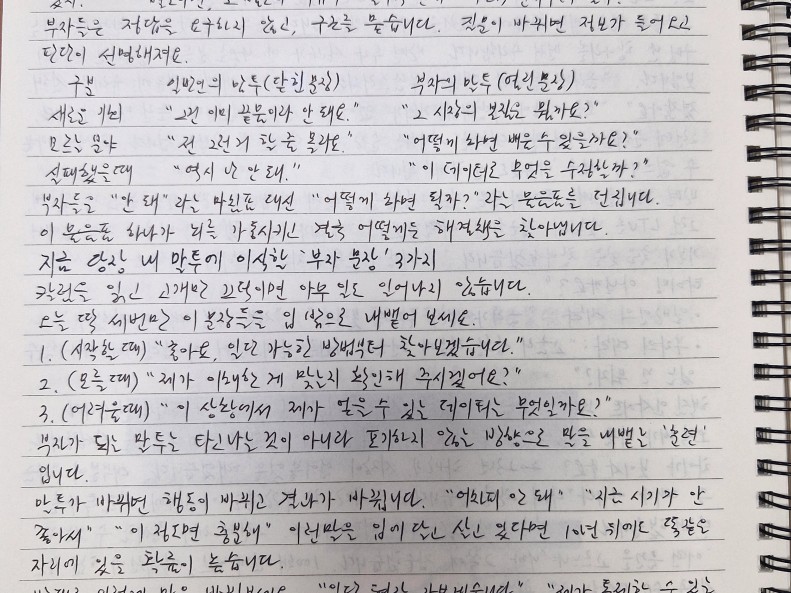 부자들은 정답을 요구하지 않고, 구조를 묻습니다. 질문이 바뀌면 정보가 들어오고
판단이 선명해져요.
구분 일반인의 말투(닫힌문장) 부자의 말투(열린문장)
새로운 기회 "그건 이미 끝물이라 안 돼요." "그 시장의 본질은 뭘까요?"
모르는 분야 "전 그런거 할 줄 몰라요." "어떻게 하면 배울 수 있을까요?"
실패했을때 "역시 난 안 돼." "이 데이터로 무엇을 수정할까?"
부자들은 "안 돼"라는 마침표 대신 "어떻게 하면 될까?"라는 물음표를 던집니다.
이 물음표 하나가 뇌를 가동시키고 결국 어떻게든 해결책을 찾아냅니다.
지금 당장 내 말투에 이식할 '부자 문장' 3가지
칼럼을 읽고 고개만 끄덕이면 아무 일도 일어나지 않습니다.
오늘 딱 세번만 이 문장들을 입 밖으로 내뱉어 보세요.
1. (시작할 때) "좋아요, 일단 가능한 방법부터 찾아보겠습니다."
2. (모를때) "제가 이해한 게 맞는지 확인해 주시겠어요?"
3. (어려울때) "이 상황에서 제가 얻을 수 있는 데이터는 무엇일까요?"
부자가 되는 말투는 타고나는 것이 아니라 포기하지 않는 방향으로 말을 내뱉는 '훈련'
입니다.
말투가 바뀌면 행동이 바뀌고 결과가 바뀝니다. "어차피 안 돼" "지금 시기가 안
좋아서" "이 정도면 충분해" 이런말을 입에 달고 살고 있다면 10년 뒤에도 똑같은
자리에 있을 확률이 높습니다.